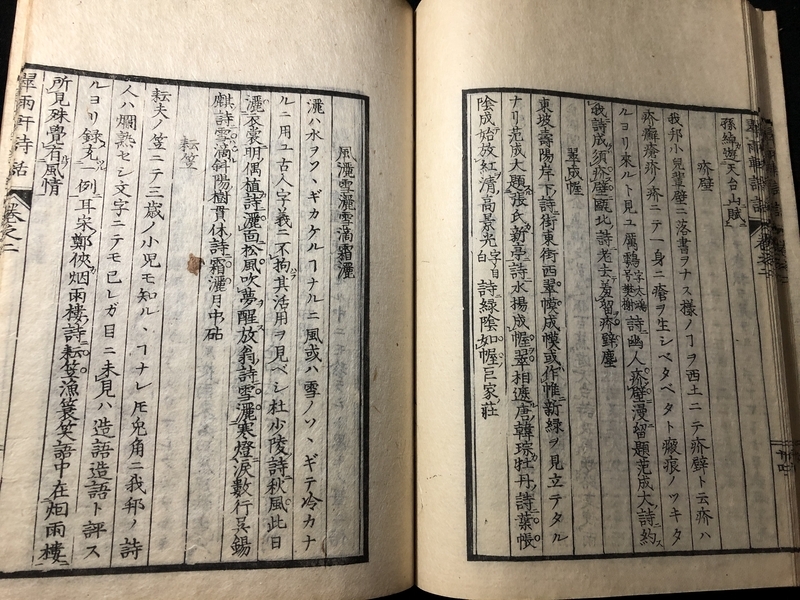 孫綽遊天台山賦
疥壁
我邦小兒輩壁ニ落書ヲナス様ノヿヲ西土ニテ疥壁ト云疥ハ
疥癬瘡疥ノ疥ニテ一身ニ瘡ヲ生シベタベタト瘢痕ノツキタ
ルヨリ來ルト見ユ厲鶚字太鴻号樊榭詩幽人疥壁漫留題范成大詩約
我詩成須疥壁甌北詩老去羞留疥壁塵
翠成幄
東坡壽陽岸下詩街東街西翠幄成幄或作帷新緑ヲ見立テタル
ナリ范成大題張氏新亭詩水揚成幄翠相遮唐韓琮牡丹詩葉帳
陰成始放紅清高景光字目白詩緑陰如幄巨家莊
翠雨軒詩話
卷之二
風灑雪灑雪滴霜灑
灑ハ水ヲソヽギカケルヿナルニ風或ハ雪ノソヽギテ冷カナ
ルニ用ユ古人字義ニ不拘其活用ヲ見ベシ杜少陵詩秋風此日
灑衣裳明偶植詩灑面松風吹夢醒放翁詩雪灑寒燈涙數行呉錫
麒詩雪滴斜陽樹貫休詩霜灑月中砧
耘笠
耘夫ノ笠ニテ三歳ノ小児モ知ルヽヿナレ𪜈兔角ニ我邦ノ詩
人ハ爛熟セシ文字ニテモ已レガ目ニ未見ハ造語造語ト評ス
ルヨリ録充一例耳宋鄭俠烟雨樓詩耘笠漁簑笑語中在烟雨樓
所見殊覺有風情
翠雨軒詩話
卷之二